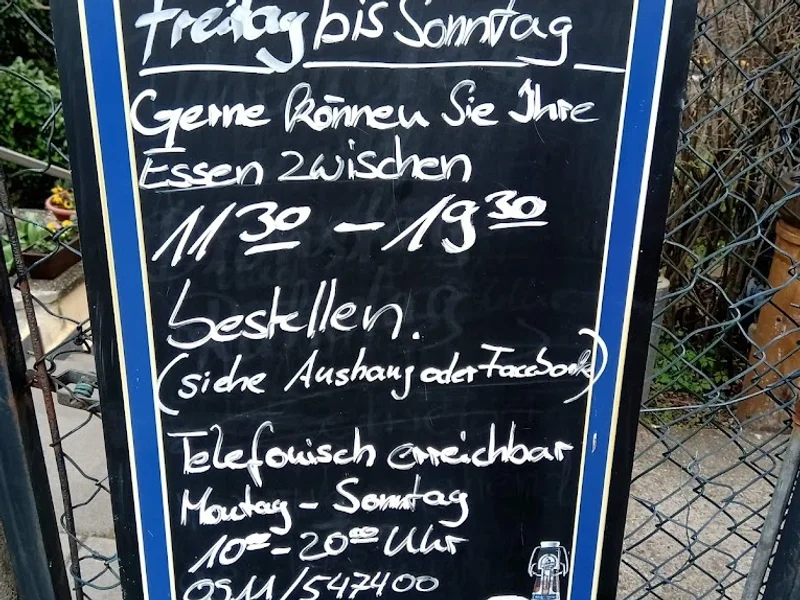 Freitag bis Sonntag
Gerne können Sie Ihre
Essen zwischen
11³⁰ – 19³⁰
bestellen.
(siehe Aushang oder Facebook)
Telefonisch erreichbar
Montag – Sonntag
10⁰⁰ – 20⁰⁰ Uhr
0911/547400